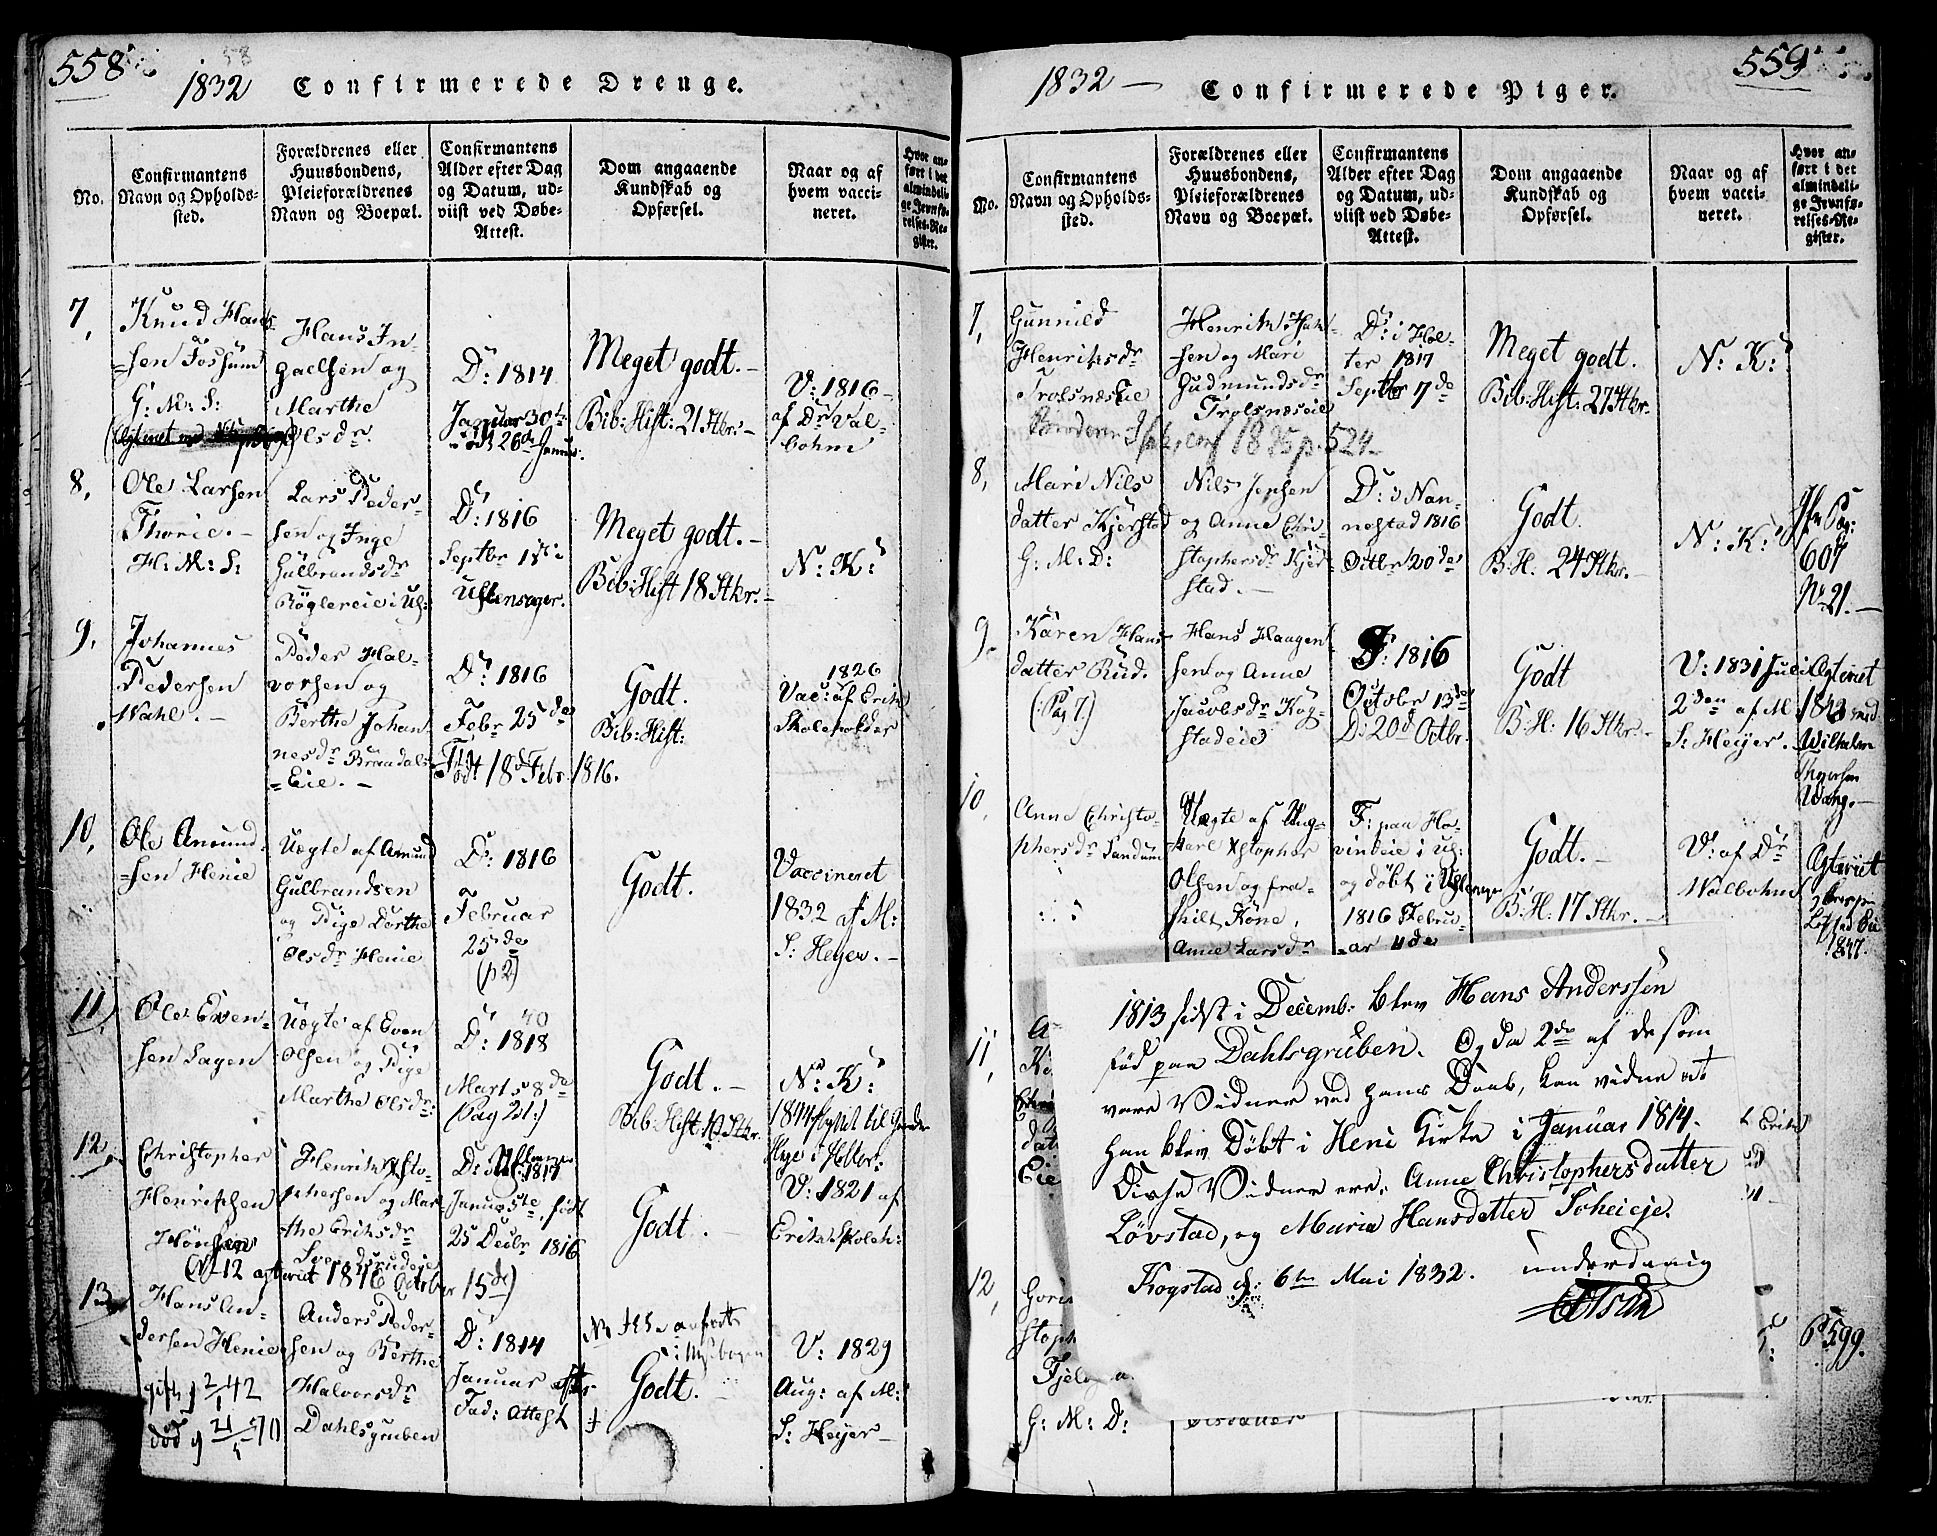 558
1832 Confirmerede Drenge.
No.
Confirmantens
Navn og Opholds-
sted.
Forældrenes eller
Huusbondens,
Pleieforældrenes
Navn og Boepæl.
Confirmantens
Alder efter Dag
og Datum, ud-
viist ved Døbe-
Attest.
Dom angaaende
Kundskab og
Opførsel.
Naar og af
hvem vacci-
neret.
Hvor an-
ført i det
almindeli-
ge Jevnfø-
relses-Re-
gister.
7,
Knud Han-
sen Fossum
G: M: S:
Hans In-
gaelsen og
Marthe
Olsdr.
Dr: 1814
Januar 30te
født 26de Januar
Meget godt.-
Bib: Hist: 21 Stkr:-
V: 1816-
af Dr Wal-
bohm
8,
Ole Larsen
Thorie.-
H: M: S:
Lars Peder-
sen og Inge
Gulbrandsdr
Røglereie i Ul:
Dr: 1816
Septbr 15de
Ullensager.
Meget godt.-
Bib: Hist 18 Stkr.-
N: K:
9,
Johannes
Pedersen
Wahl.-
Peder Hal-
vorsen og
Berthe Johan
nesdr Brændals-
Eie.-
Dr: 1816
Febr 25de
Født 18de Febr. 1816.
Godt.
Bib: Hist:
1826
Vac: af Erik
Skoleholder
10,
Ole Amund-
sen Henie
Uægte af Amund
Gulbrandsen
og Pige Dorthe
Olsdr Henie
Dr: 1816
Februar
25de
(p 2)
Godt.
Vaccineret
1832 af M:
S: Heyer.-
11,
Ole Even-
sen Sagen
Uægte af Even
Olsen og Pige
Marthe Olsdr:
Dr: 1818
Marts 8de
(Pag 21:)
Godt.-
Bib: Hist 10 Stkr.
N: K:
1844 flyttet til
Hye i Holler:
12,
Christopher
Henriksen
Hønsen
Henrik Xsto-
phersen og Mar-
the Eriksdr
Svendsrudeie
Dr: 1817
Januar 5te, født
25 Decbr 1816
Godt.-
V: 1821 af
Erik Skoleh:
(N-12 agteriet 1846 October 15de)
13,
Hans An-
dersen Henie
gift
død
Anders Peder-
sen og Berthe
Halvorsdr
Dahlsgruben
Dr: 1814
Januar efter
Fad: Attest
Godt.-
V: 1829
Aug: af M:
S: Heyer-
559
1832 - Confirmerede Piger.
No.
Confirmantens
Navn og Opholds-
sted.
Forældrenes eller
Huusbondens,
Pleieforældrenes
Navn og Boepæl.
Confirmantens
Alder efter Dag
og Datum, ud-
viist ved Døbe-
Attest.
Dom angaaende
Kundskab og
Opførsel.
Naar og af
hvem vacci-
neret.
Hvor an-
ført i det
almindeli-
ge Jevnfø-
relses-Re-
gister.
7,
Gunnild
Henriksdr
Trolsnæseie
Henrik Han-
sen og Mari
Gudmundsdr
Trolsnæseie
Dr: i Hol-
ter 1817
Septbr 7de
Meget godt.
Bib: Hist: 27 Stkr.
N: K:
1835 p. 524-
8,
Mari Nils
datter Kjerstad
G: M: D:
Nils Jensen
og Anne Chri-
stophersdr Kjer-
stad.-
Dr: i Nan-
nestad 1816
Octbr 20de
Godt.
B: H. 24 Stkr.-
N: K:
Pag:
607
No 21.-
9,
Karen Hans-
datter Rud.
(: Pag 7.)
Hans Haagen
sen og Anne
Jacobsdr Kog-
stadeie
F: 1816
Octobr 13de
D: 20de Octbr.
Godt
B: H: 16 Stkr.-
V: 1831 Juli
2den af M:
S: Heijer.-
Agteriet
1843 med
Wilhelm
Wang.-
10,
Anne Christo-
phersdr Sandum
Uægte af Ung-
karl Xstopher
Olsen og fra-
skilt Kone,
Anne Larsdr
F: paa Ho-
vindeie i Ul:
og døbt i Ullensager
1816 Februar
-ar 4de
Godt.-
B: H: 17 Stkr.-
V: af Dr
Walbohm
Agteriet
1847.
11,
Eie
12,
G: M: D:
P 599.
1813 sidst i Decemb: blev Hans Anderssen
fød paa Dahlsgruben. Og da 2de af de som
vare Vidner ved hans Daab, kan vidne at
han blev Døbt i Heni Kirke i Januar 1814.
Disse Vidner ere, Anne Christophersdatter
Løvstad, og Maria Hansdatter Soheieje.
Kogstad d: 6te Mai 1832. underdanig